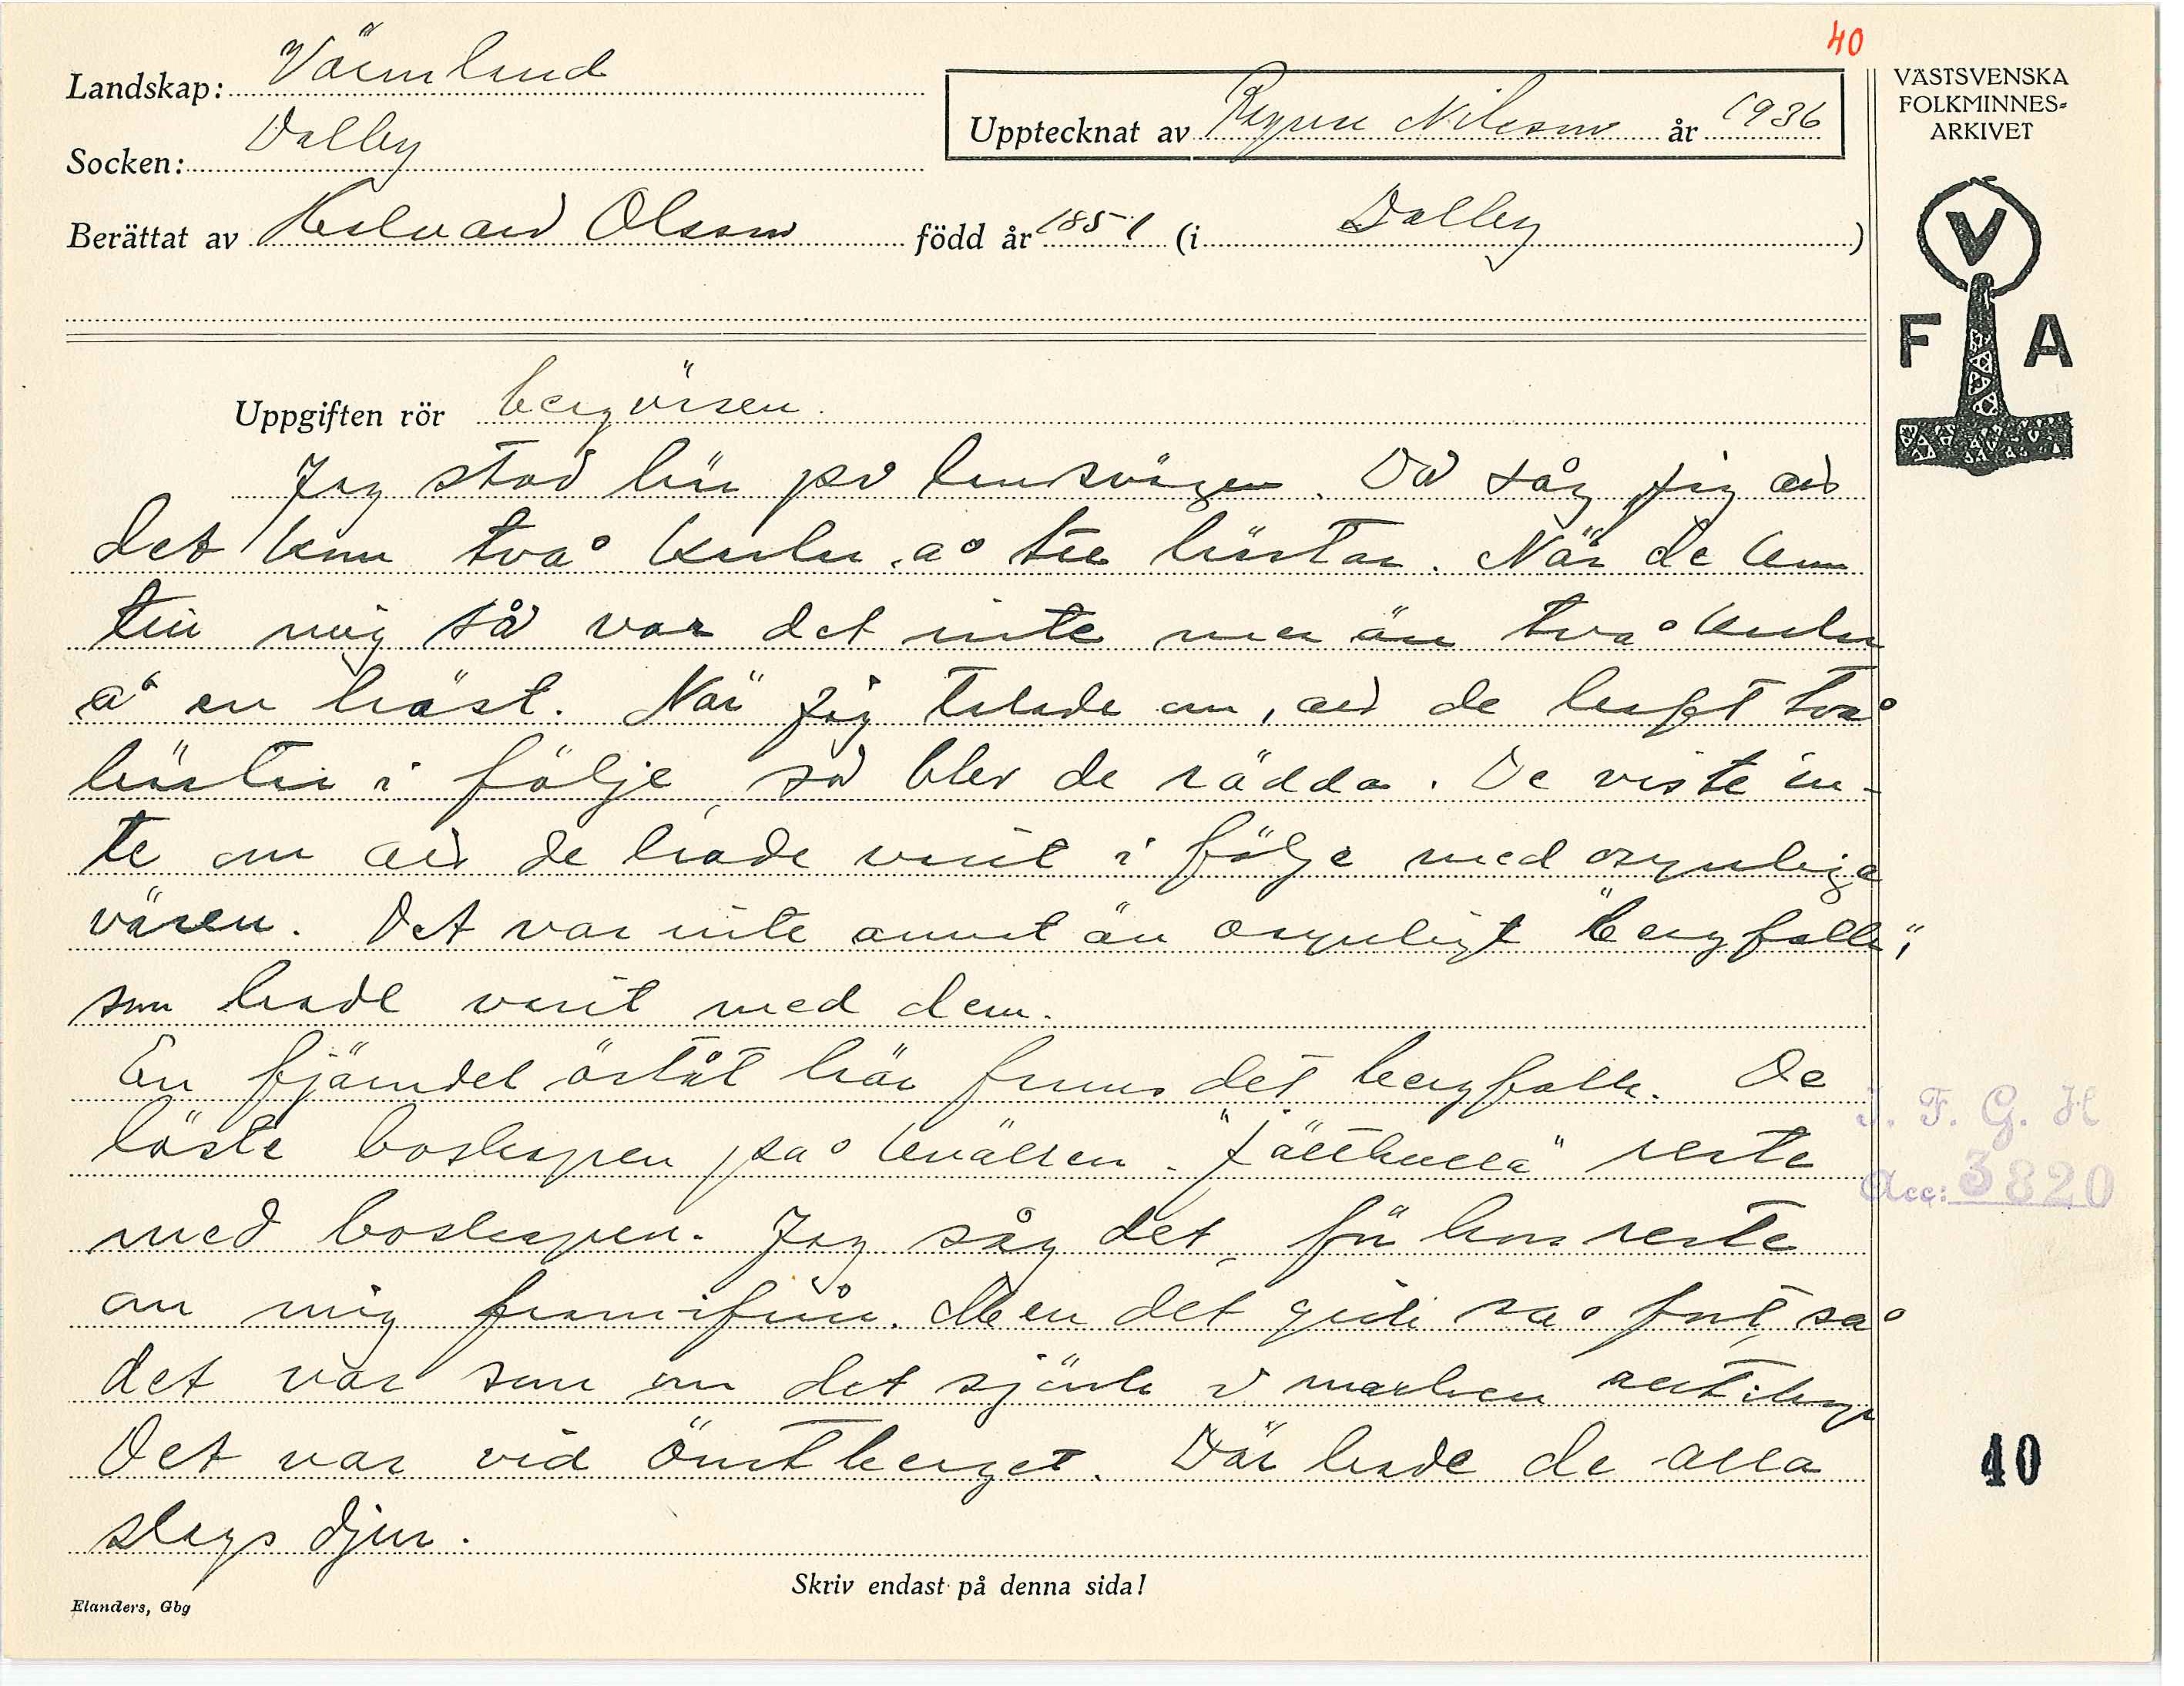 40
Landskap: Värmland
VÄSTSVENSKA
FOLKMINNES-
ARKIVET
Upptecknat av Ragnar Nilsson år 1936
Socken: Dalby
Berättat av Halvard Olsson född år 1851 (i Dalby)
V
F A
Uppgiften rör bergväsen.
Jag stod här på landsvägen. Då såg jag att
det kom två karlar å tre hästar. När de kom
till mig så var det inte mer än två karlar
å en häst. När jag talade om, att de haft två
hästar i följe, så blev de rädda. De visste in-
te om att de hade varit i följe med osynliga
väsen. Det var inte annat än osynligt "bergfolk",
som hade varit med dem.
En fjärndel öståt här fanns det bergfolk. De
löste boskapen på kvällen. "Jättkulla" reste
med boskapen. Jag såg det, för hon reste
om mig framifrån. Men det gick så fort, så
det var som om det sjönk i marken
Det var vid Önstberget. Där hade de alla
slags djur.
I. F. G. H
Acc: 3820
40
Skriv endast på denna sida!
Elanders, Gbg